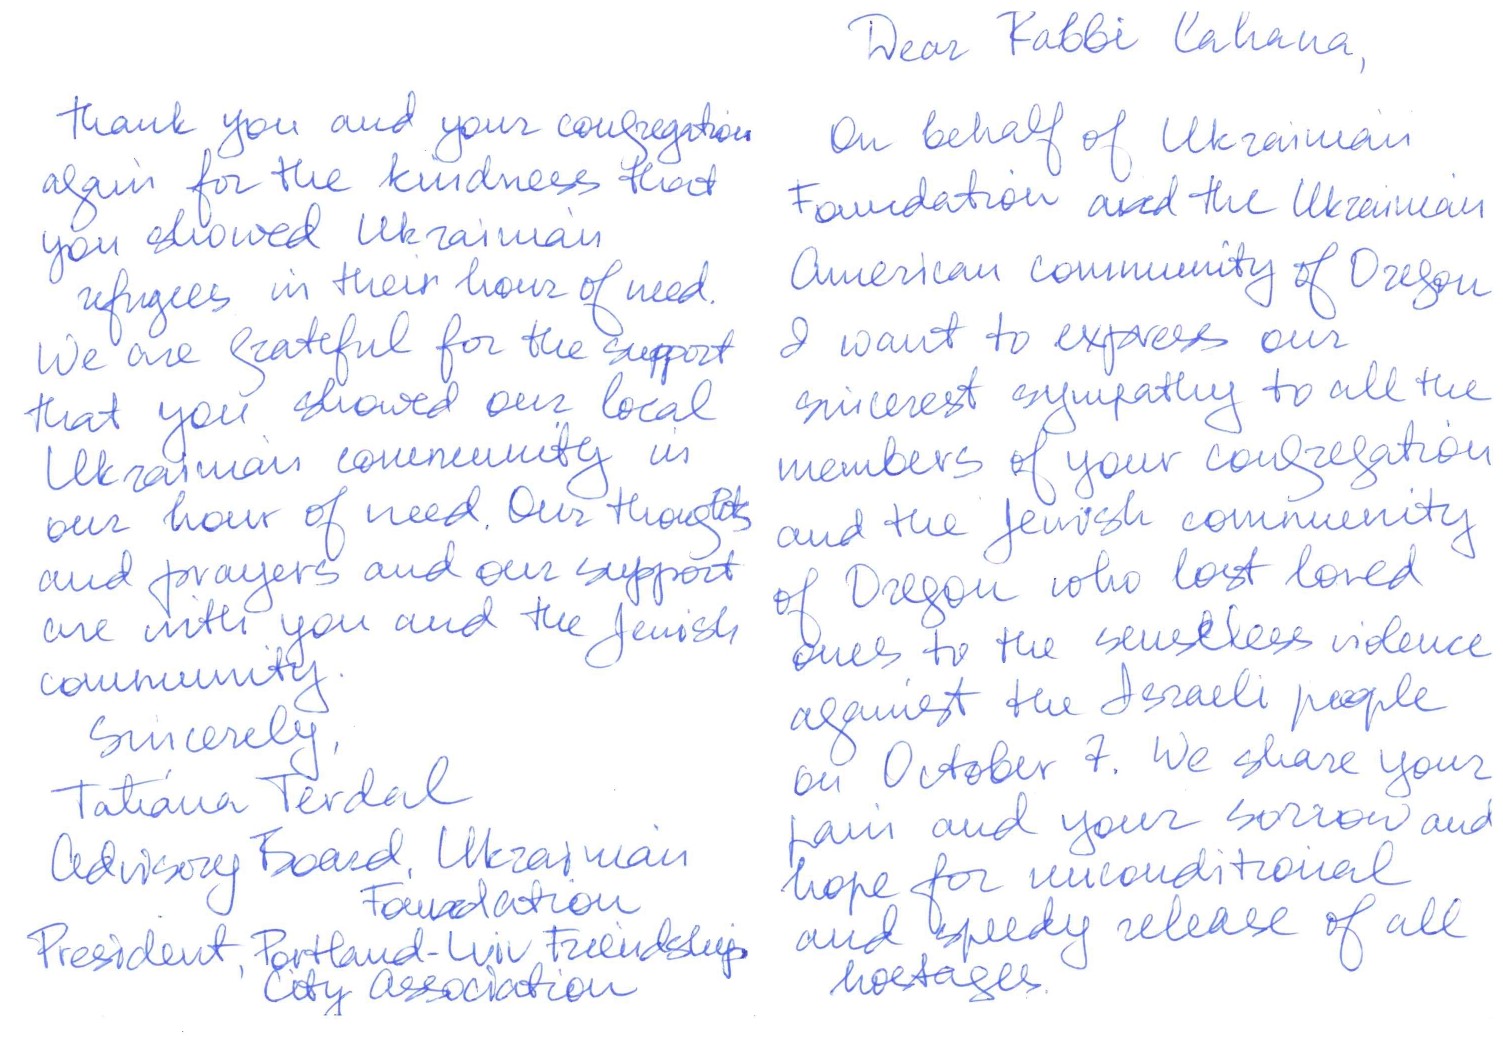 Dear Rabbi Kahana,
On behalf of Ukrainian
Foundation and the Ukrainian
American community of Oregon
I want to express our
sincerest sympathy to all the
members of your congregation
and the Jewish community
of Oregon who lost loved
ones to the senseless violence
against the Israeli people
on October 7. We share your
pain and your sorrow and
hope for unconditional
and speedy release of all
hostages.
Thank you and your congregation
again for the kindness that
you showed Ukrainian
refugees in their hour of need.
We are grateful for the support
that you showed our local
Ukrainian community in
our hour of need. Our thoughts
and prayers and our support
are with you and the Jewish
community.
Sincerely,
Tatiana Terdal
Advisory Board, Ukrainian
Foundation
President, Portland-Lviv Friendship
City Association